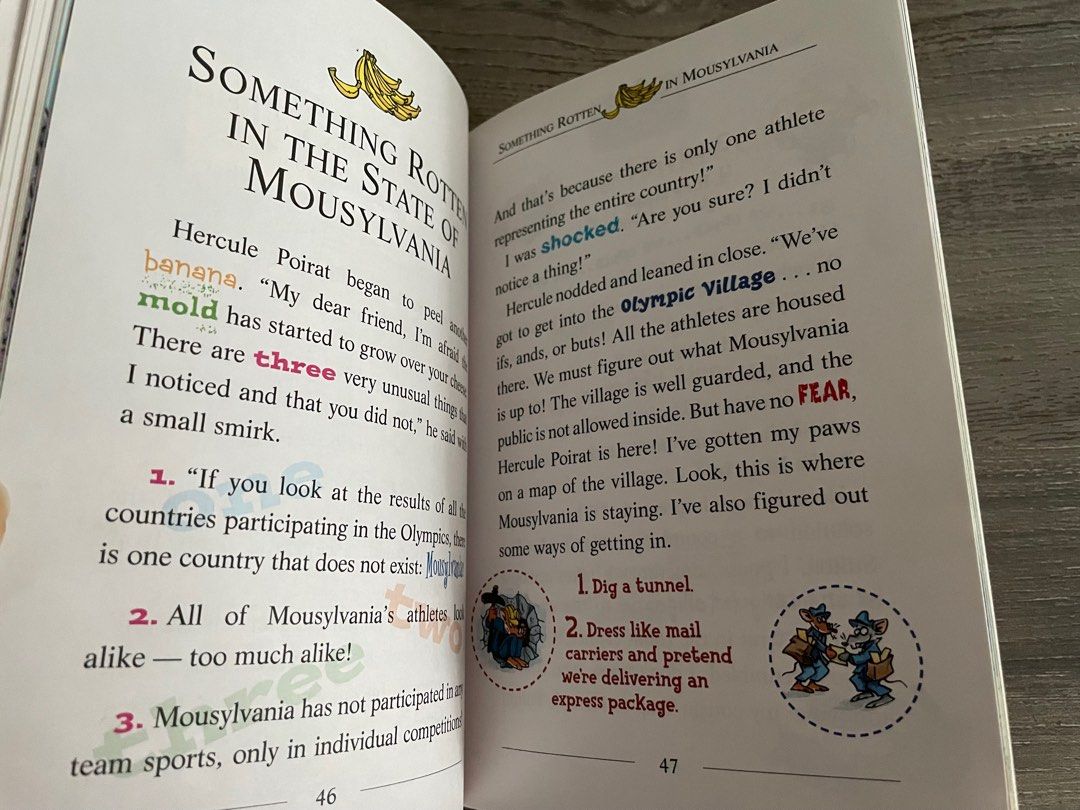 SOMETHING ROTTEN
IN THE STATE OF
MOUSYLVANIA
Hercule Poirat began to peel another
banana. "My dear friend, I'm afraid the
mold has started to grow over your cheese.
There are three very unusual things that
I noticed and that you did not," he said with
a small smirk.
one
1. "If you look at the results of all the
countries participating in the Olympics, there
is one country that does not exist: Mousylvania!
two
2. All of Mousylvania's athletes look
alike — too much alike!
three
3. Mousylvania has not participated in any
team sports, only in individual competitions!
46
SOMETHING ROTTEN IN MOUSYLVANIA
And that's because there is only one athlete
representing the entire country!"
I was shocked. "Are you sure? I didn't
notice a thing!"
Hercule nodded and leaned in close. "We've
got to get into the Olympic Village . . . no
ifs, ands, or buts! All the athletes are housed
there. We must figure out what Mousylvania
is up to! The village is well guarded, and the
public is not allowed inside. But have no FEAR,
Hercule Poirat is here! I've gotten my paws
on a map of the village. Look, this is where
Mousylvania is staying. I've also figured out
some ways of getting in.
1. Dig a tunnel.
2. Dress like mail
carriers and pretend
we're delivering an
express package.
47